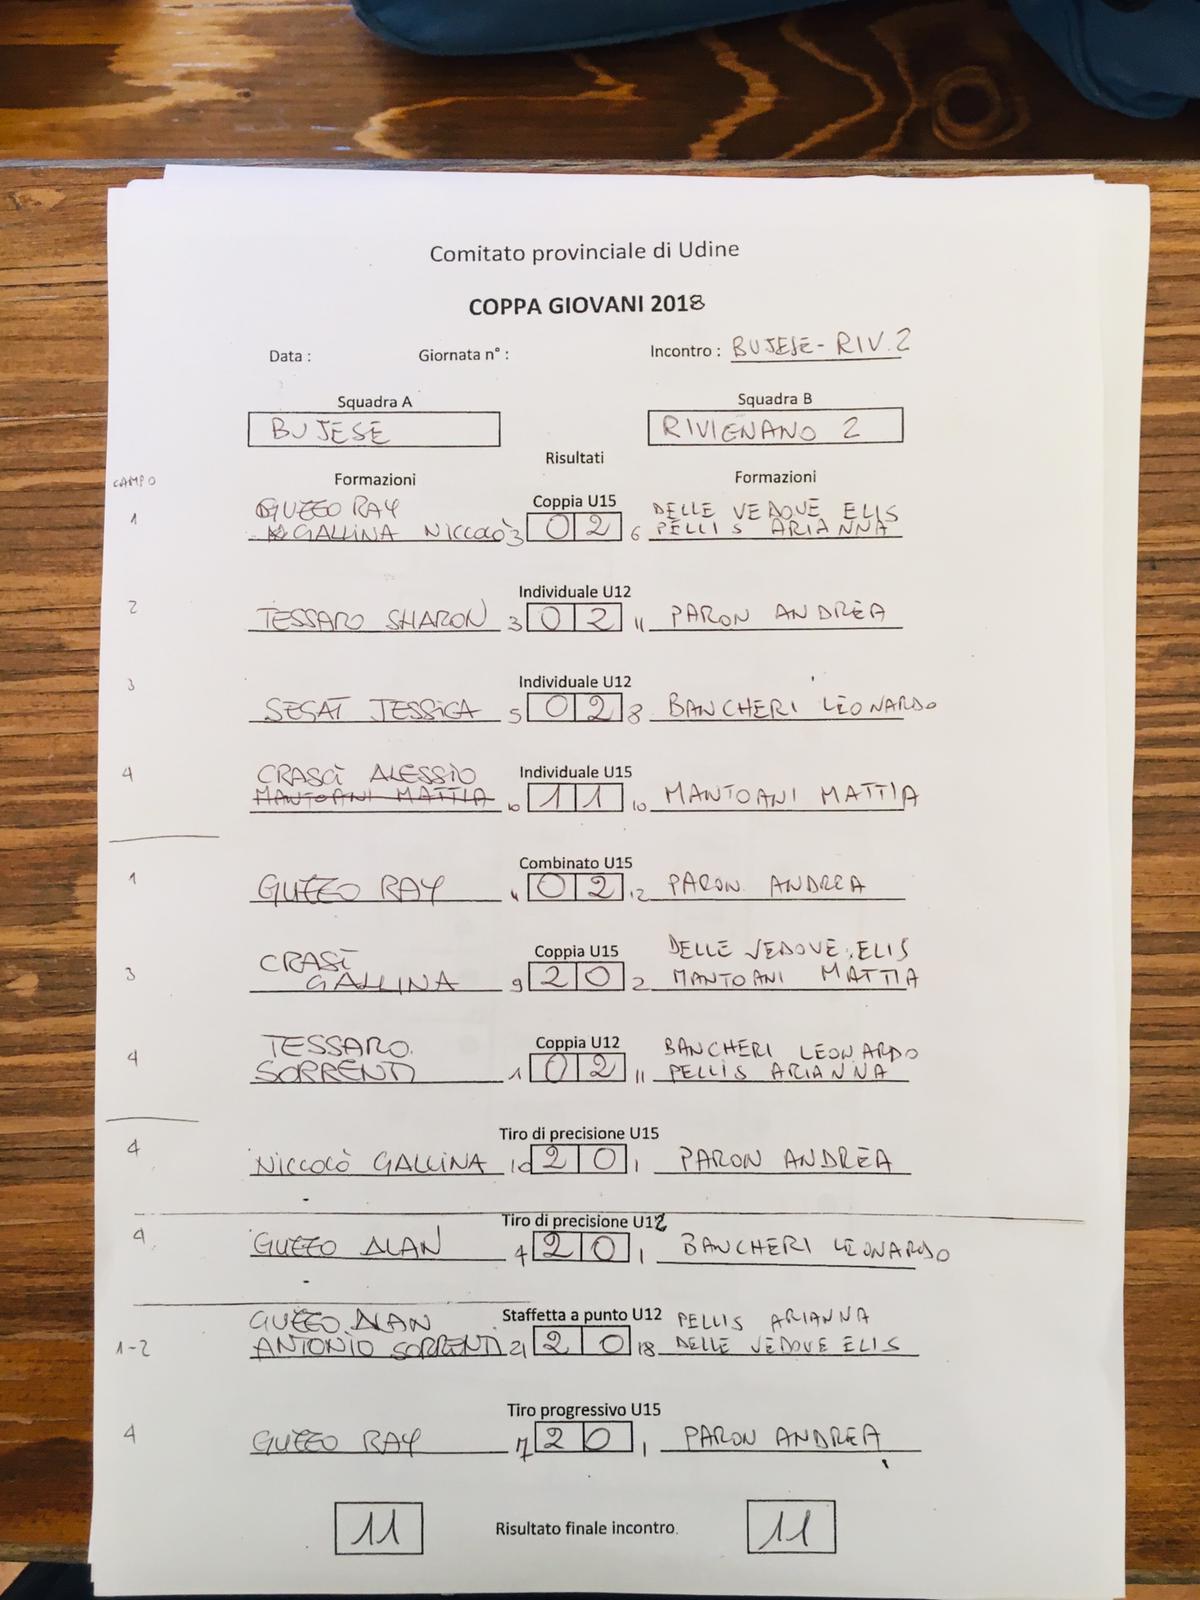 Comitato provinciale di Udine
COPPA GIOVANI 2018
Data : Giornata n° : Incontro : BUJESE - RIV. 2
Squadra A Squadra B
BUJESE RIVIGNANO 2
Risultati
CAMPO Formazioni Formazioni
Coppia U15
1 GUZZO RAY DELLE VEDOVE ELIS
GALLINA NICCOLÒ 3 0 2 6 PELLIS ARIANNA
Individuale U12
2 TESSARO SHARON 3 0 2 11 PARON ANDREA
Individuale U12
3 SEGAT JESSICA 5 0 2 8 BANCHERI LEONARDO
Individuale U15
4 CRASCÌ ALESSIO
MANTOANI MATTIA 10 1 1 10 MANTOANI MATTIA
Combinato U15
1 GUZZO RAY 4 0 2 12 PARON ANDREA
Coppia U15
3 CRASÌ DELLE VEDOVE ELIS
GALLINA 9 2 0 2 MANTOANI MATTIA
Coppia U12
4 TESSARO BANCHERI LEONARDO
SORRENTI 1 0 2 11 PELLIS ARIANNA
Tiro di precisione U15
4 NICCOLÒ GALLINA 10 2 0 1 PARON ANDREA
Tiro di precisione U12
4 GUZZO ALAN 4 2 0 1 BANCHERI LEONARDO
Staffetta a punto U12
GUZZO ALAN PELLIS ARIANNA
1-2 ANTONIO SORRENTI 21 2 0 18 DELLE VEDOVE ELIS
Tiro progressivo U15
4 GUZZO RAY 7 2 0 1 PARON ANDREA
11 Risultato finale incontro. 11